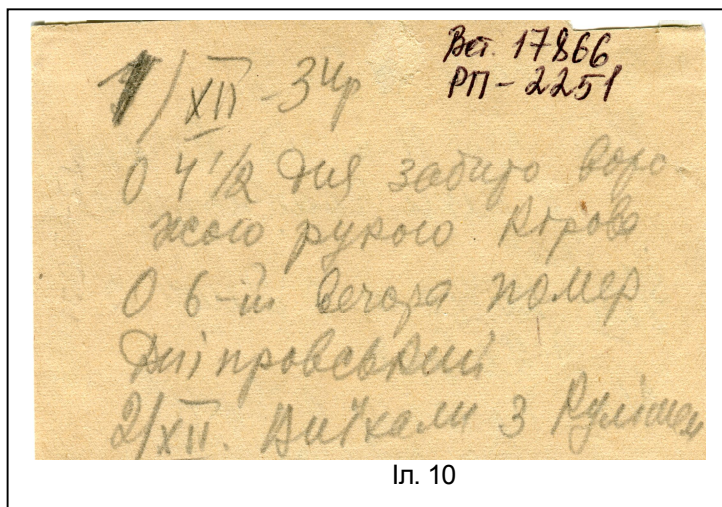 Вст. 17866
РП-2251
1/XII-34р
О 4 1/2 дня забито воро-
жою рукою Кірова
О 6-ій вечора помер
Дніпровський
2/XII. Виїхали з Кулішем
Іл. 10